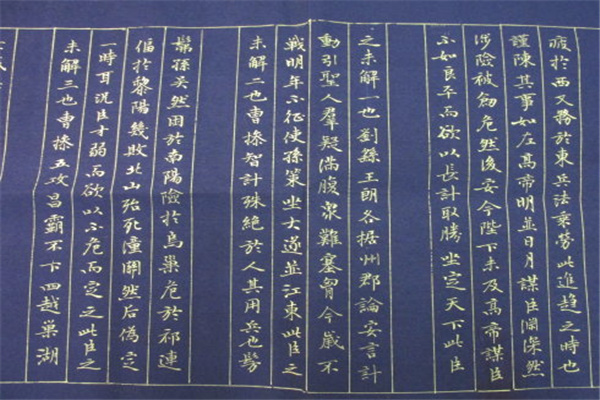 疲於西又務於東兵法乘勞此進趨之時也
謹陳其事如左高帝明並日月謀臣淵深然
涉險被創危然後安今陛下未及高帝謀臣
不如良平而欲以長計取勝坐定天下此臣
之未解一也劉繇王朗各據州郡論安言計
動引聖人羣疑滿腹衆難塞胷今歲不
戰明年不征使孫策坐大遂並江東此臣之
未解二也曹操智計殊絕於人其用兵也髣
髴孫吳然困於南陽險於烏巢危於祁連
偪於黎陽幾敗北山殆死潼關然后偽定
一時耳況臣才弱而欲以不危而定之此臣之
未解三也曹操五攻昌霸不下四越巢湖